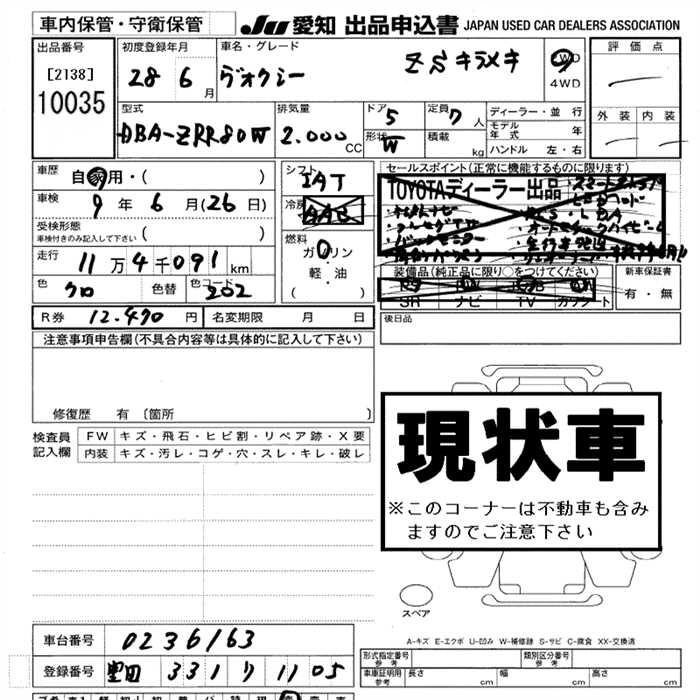 車内保管・守衛保管 JU 愛知 出品申込書 JAPAN USED CAR DEALERS ASSOCIATION
出品番号 初度登録年月 車名・グレード 評価点
[2138] 28 6月 ヴォクシー ZS キラメキ 2WD
10035 4WD
型式 排気量 ドア 5 定員 7人 ディーラー・並行 外装 内装
DBA-ZRR80W 2.000 CC 形状 W 積載 kg モデル年式 年
ハンドル 左・右
車歴 自家用・( ) シフト IAT セールスポイント(正常に機能するものに限ります)
車検 9年6月(26日) 冷房 AAC TOYOTAディーラー出品
受検形態
車検付きのみ記入して下さい ( ) 燃料 ガソリン
走行 11万4千091km 軽・油 装備品(純正品に限り○をつけてください) 新車保証書
色 クロ 色替 色コード 202 ( ) SR ナビ TV カワシート 有・無
R券 12.470円 名変期限 月 日 後日品
注意事項申告欄(不具合内容等は具体的に記入して下さい)
修復歴 有 〔箇所 〕
検査員記入欄 FW キズ・飛石・ヒビ割・リペア跡・X要
内装 キズ・汚レ・コゲ・穴・スレ・キレ・破レ
現状車
※このコーナーは不動車も含み
ますのでご注意下さい
スペア
A-キズ E-エクボ U-凹み W-補修跡 S-サビ C-腐食 XX-交換済
車台番号 0236163 形式指定番号 参考 類別区分番号 参考
登録番号 豊田 331 り 1105 車庫証明用 参考 長さ cm 幅 cm 高さ cm